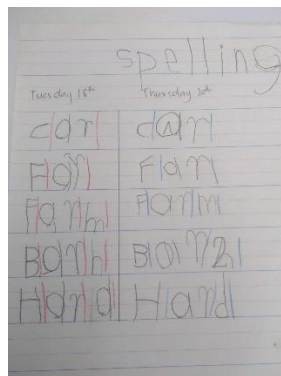 spelling
Tuesday 18th Thursday 20th
car car
Far Far
Farm Farm
Barn Barn
Hard Hard